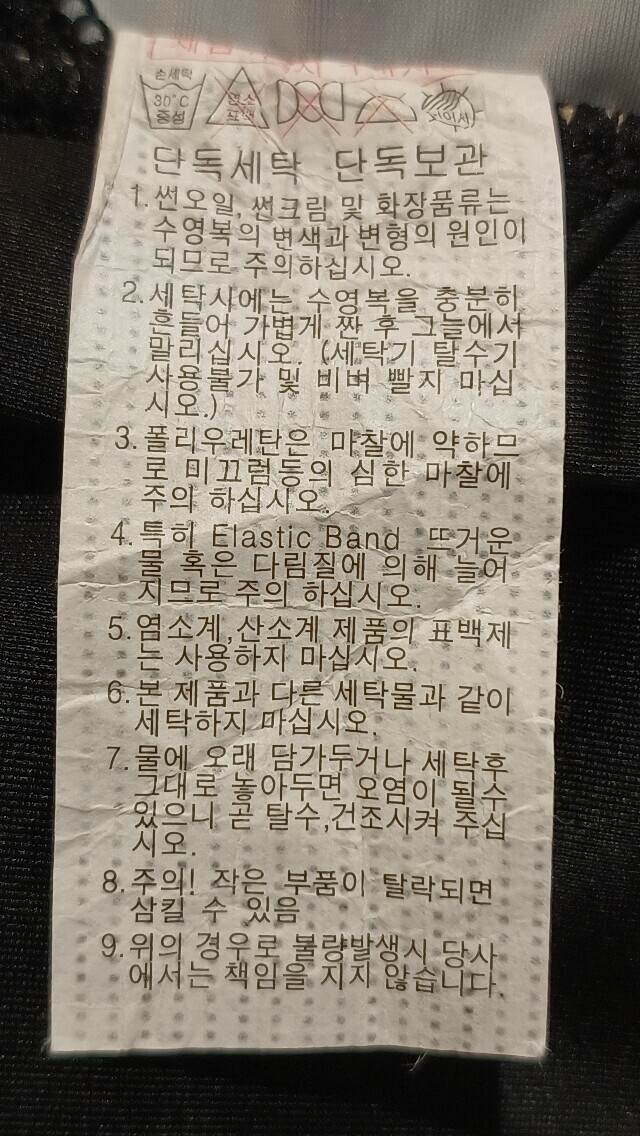 손세탁
30°C
중성
염소
표백
단독세탁 단독보관
1.썬오일, 썬크림 및 화장품류는
수영복의 변색과 변형의 원인이
되므로 주의하십시오.
2.세탁시에는 수영복을 충분히
흔들어 가볍게 짠 후 그늘에서
말리십시오. (세탁기 탈수기
사용불가 및 비벼 빨지 마십
시오.)
3.폴리우레탄은 마찰에 약하므
로 미끄럼등의 심한 마찰에
주의 하십시오.
4.특히 Elastic Band 뜨거운
물 혹은 다림질에 의해 늘어
지므로 주의 하십시오.
5.염소계,산소계 제품의 표백제
는 사용하지 마십시오.
6.본 제품과 다른 세탁물과 같이
세탁하지 마십시오.
7.물에 오래 담가두거나 세탁후
그대로 놓아두면 오염이 될수
있으니 곧 탈수,건조시켜 주십
시오.
8.주의! 작은 부품이 탈락되면
삼킬 수 있음
9.위의 경우로 불량발생시 당사
에서는 책임을 지지 않습니다.